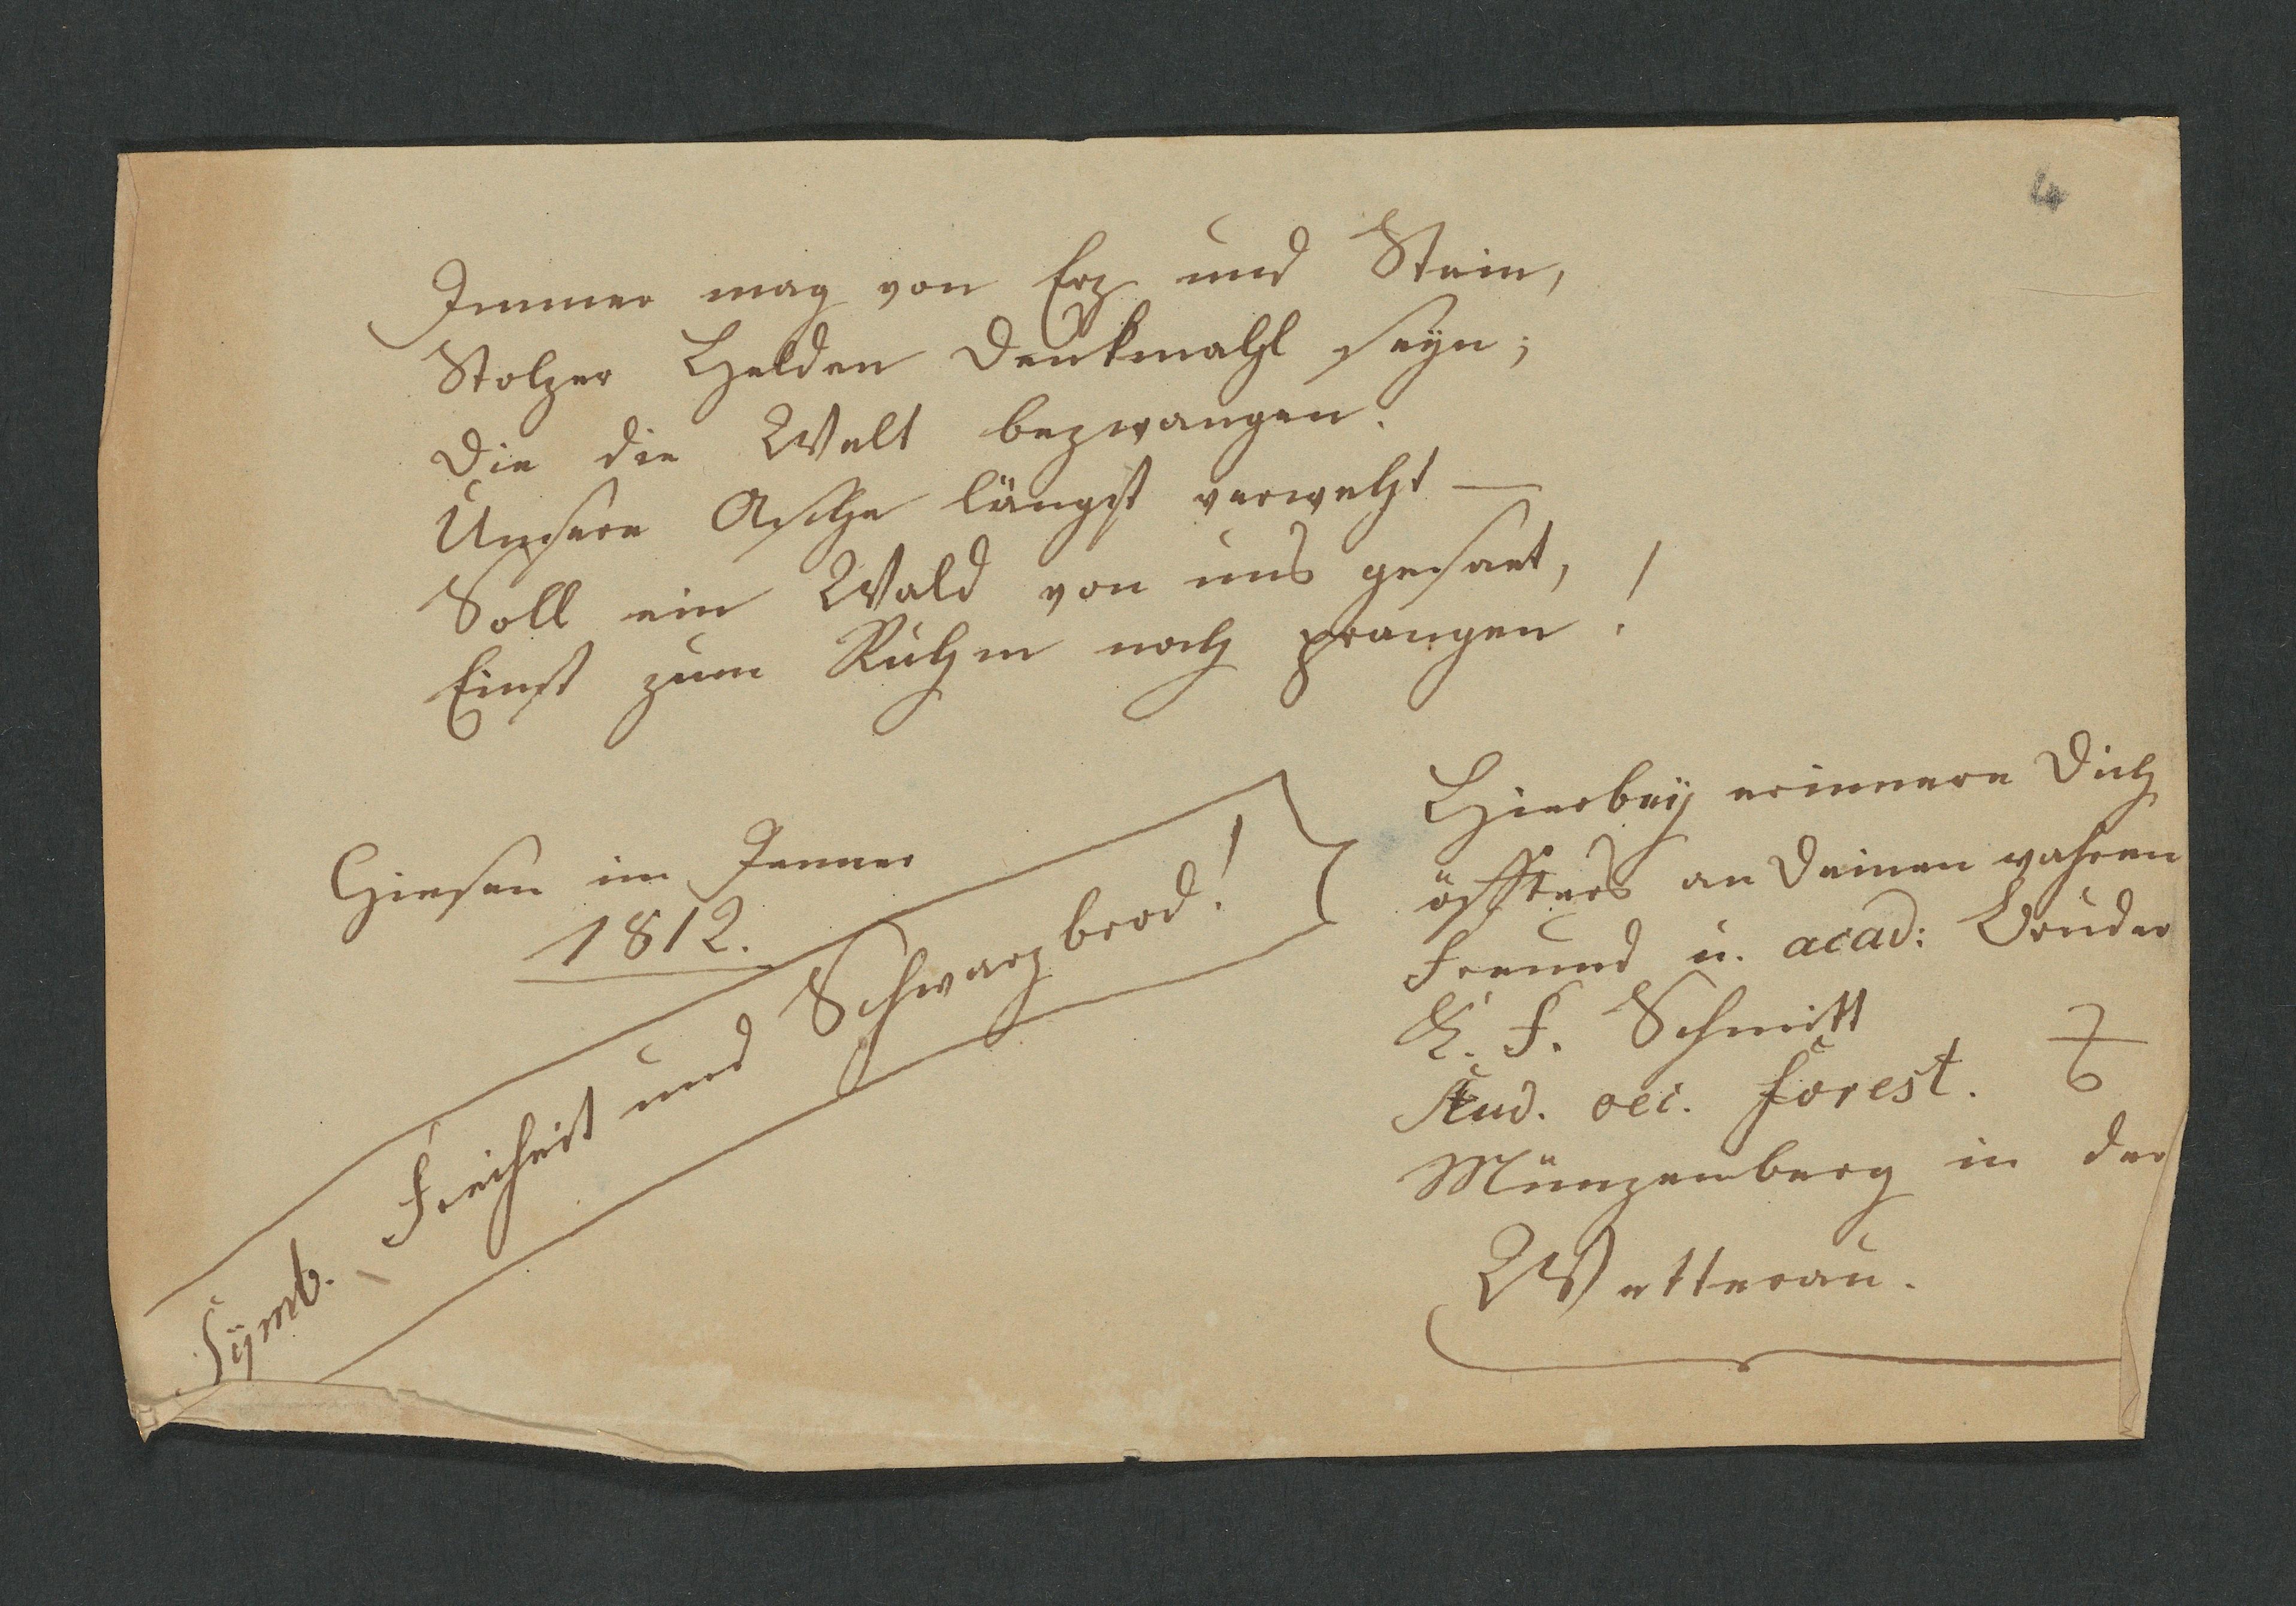 4
Immer mag von Erz und Stein,
Stolzer Helden Denkmahl seyn;
Die die Welt bezwangen.
Unsere Asche längst verweht —
Soll ein Wald von uns gesaet,
Einst zum Ruhm noch prangen!
Giesen im Jenner
1812.
Symb. Freiheit und Schwarzbrod!
Hierbey erinnere Dich
öffters an Deinen wahren
Freund u. acad: Bruder
F. Schmitt
Stud. oec. forest.
Münzenberg in der
Wetterau.